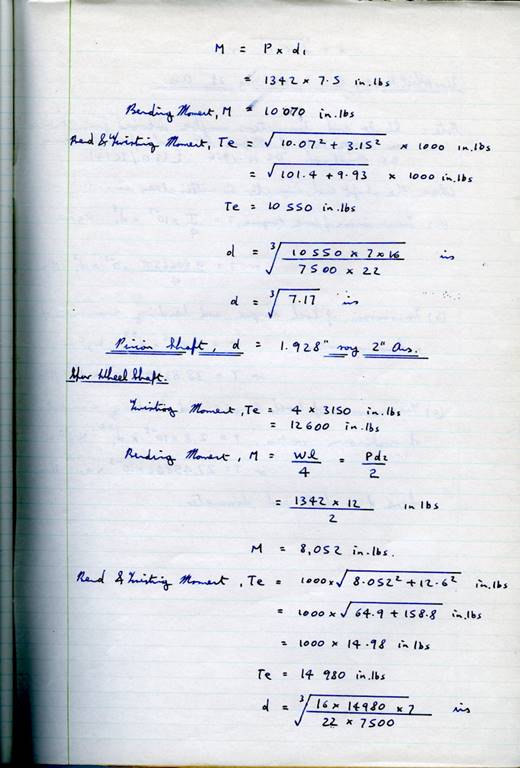 M = P x d₁
= 1342 x 7.5 in.lbs
Bending Moment, M = 10070 in.lbs
Bend & Twisting Moment, Te = √10.07² + 3.15² x 1000 in.lbs
= √101.4 + 9.93 x 1000 in.lbs
Te = 10550 in.lbs
d = ∛(10550 x 7 x 16 / 7500 x 22) ins
d = ∛7.17 ins
Pinion Shaft, d = 1.928" say 2" Ans.
Spur Wheel Shaft.
Twisting Moment, Te = 4 x 3150 in.lbs
= 12600 in.lbs
Bending Moment, M = Wl/4 = Pd₂/2
= 1342 x 12 / 2 in lbs
M = 8,052 in.lbs.
Bend & Twisting Moment, Te = 1000x√8.052² + 12.6² in.lbs
= 1000x√64.9 + 158.8 in.lbs
= 1000 x 14.98 in.lbs
Te = 14 980 in.lbs
d = ∛(16 x 14980 x 7 / 22 x 7500) ins